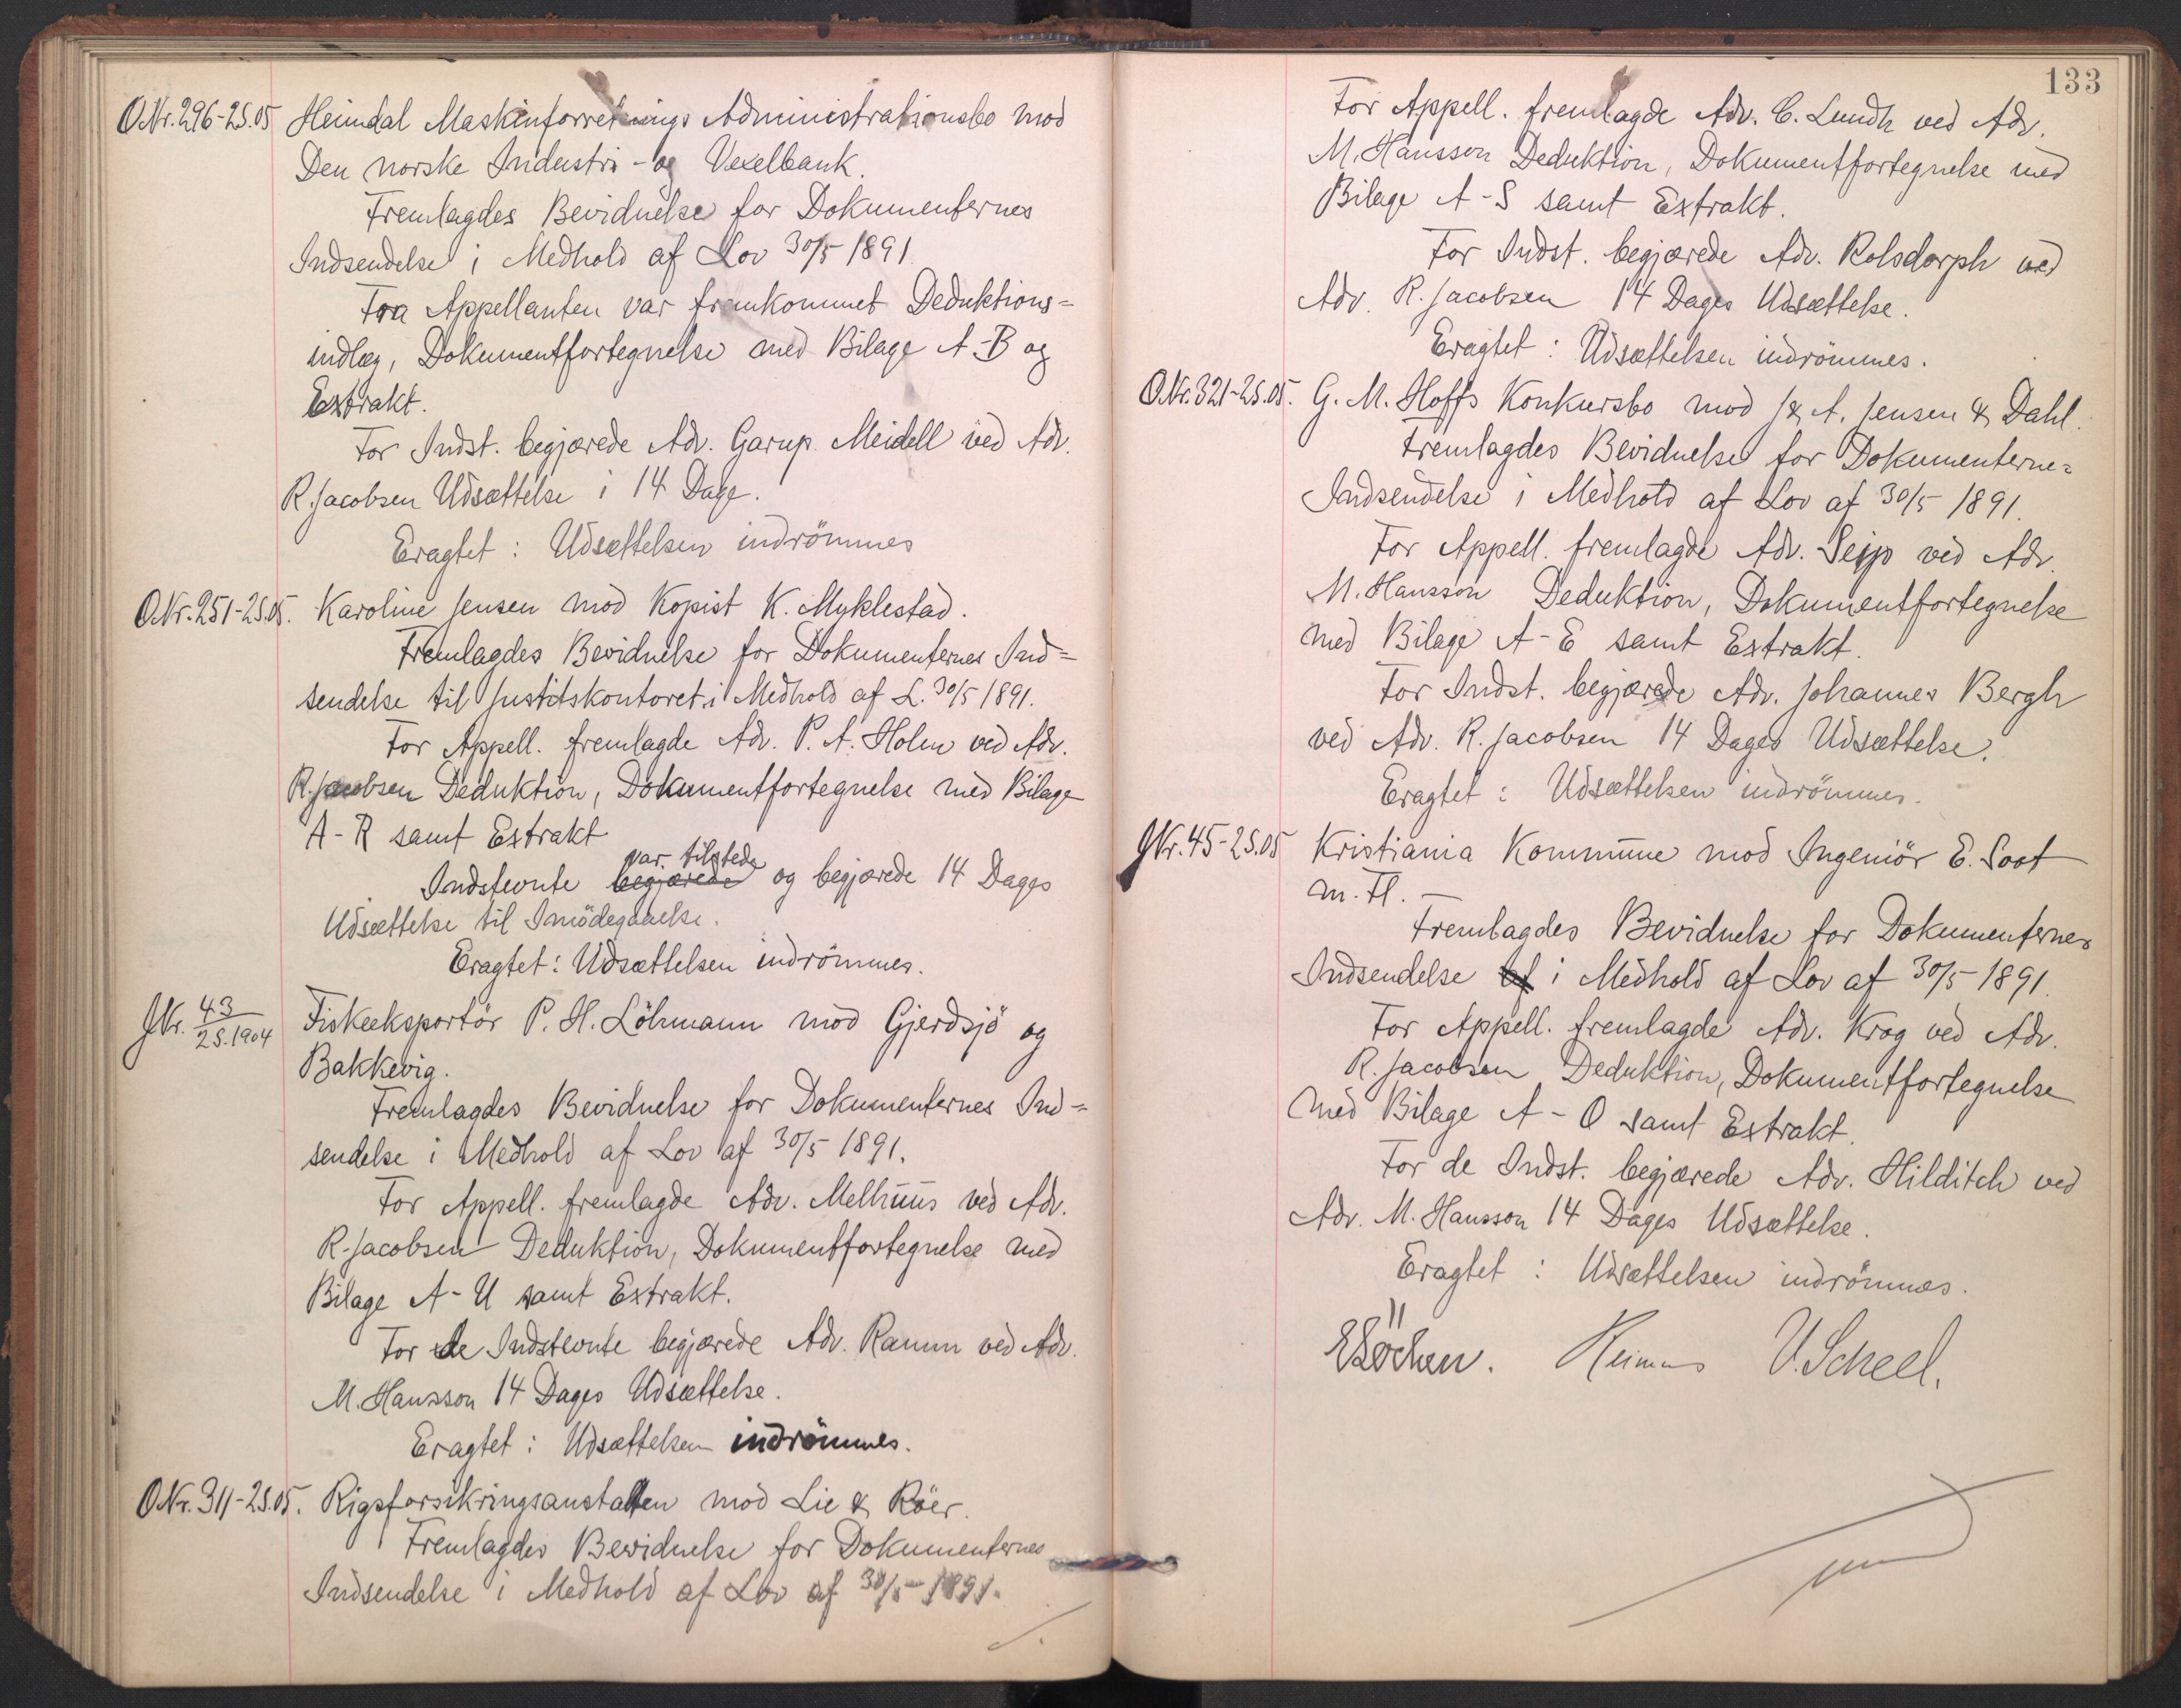 O.Nr. 296-2S.05 Heimdal Maskinforretnings Administrationsbo mod
Den norske Industri- og Vexelbank.
Fremlagdes Bevidnelse for Dokumenternes
Indsendelse i Medhold af Lov 30/5 1891.
Fra Appellanten var fremkommet Deduktions=
indlæg, Dokumentfortegnelse med Bilage A-B og
Extrakt.
For Indst. begjærede Adv. Garup Meidell ved Adv.
R. Jacobsen Udsættelse i 14 Dage.
Eragtet: Udsættelsen indrömmes
O.Nr. 251-2S.05. Karoline Jensen mod Kopist K. Myklestad.
Fremlagdes Bevidnelse for Dokumenternes Ind=
sendelse til Justitskontoret i Medhold af L. 30/5 1891.
For Appell. fremlagde Adv. P. A. Holm ved Adv.
R. Jacobsen Deduktion, Dokumentfortegnelse med Bilage
A-R samt Extrakt
var tilstede
Indstevnte begjærede og begjærede 14 Dages
Udsættelse til Imödegaaelse.
Eragtet: Udsættelsen indrömmes.
J.Nr. 43/2S.1904 Fiskeeksportör P. H. Löhmann mod Gjerdsjö og
Bakkevig.
Fremlagdes Bevidnelse for Dokumenternes Ind=
sendelse i Medhold af Lov af 30/5 1891.
For Appell. fremlagde Adv. Melhuus ved Adv.
R. Jacobsen Deduktion, Dokumentfortegnelse med
Bilage A-U samt Extrakt.
For de Indstevnte begjærede Adv. Ramm ved Adv.
M. Hansson 14 Dages Udsættelse.
Eragtet: Udsættelsen indrömmes.
O.Nr. 311-2S.05. Rigsforsikringsanstalten mod Lie & Röer.
Fremlagdes Bevidnelse for Dokumenternes
Indsendelse i Medhold af Lov af 30/5 1891.
133
For Appell. fremlagde Adv. C. Lundh ved Adv.
M. Hansson Deduktion, Dokumentfortegnelse med
Bilage A-S samt Extrakt.
For Indst. begjærede Adv. Rolsdorph ved
Adv. R. Jacobsen 14 Dages Udsættelse.
Eragtet: Udsættelsen indrömmes.
O.Nr. 321-2S.05. G. M. Hoffs Konkursbo mod J. & A. Jensen & Dahl.
Fremlagdes Bevidnelse for Dokumenterne=
Indsendelse i Medhold af Lov af 30/5 1891.
For Appell. fremlagde Adv. Seip ved Adv.
M. Hansson Deduktion, Dokumentfortegnelse
med Bilage A-E samt Extrakt.
For Indst. begjærede Adv. Johannes Bergh
ved Adv. R. Jacobsen 14 Dages Udsættelse.
Eragtet: Udsættelsen indrömmes.
J.Nr. 45-2S.05 Kristiania Kommune mod Ingeniör E. Soot
m. Fl.
Fremlagdes Bevidnelse for Dokumenternes
Indsendelse af i Medhold af Lov af 30/5 1891.
For Appell. fremlagde Adv. Krog ved Adv.
R. Jacobsen Deduktion, Dokumentfortegnelse
med Bilage A-O samt Extrakt.
For de Indst. begjærede Adv. Hilditch ved
Adv. M. Hansson 14 Dages Udsættelse.
Eragtet: Udsættelsen indrömmes.
E Löchen. Reimers V. Scheel.